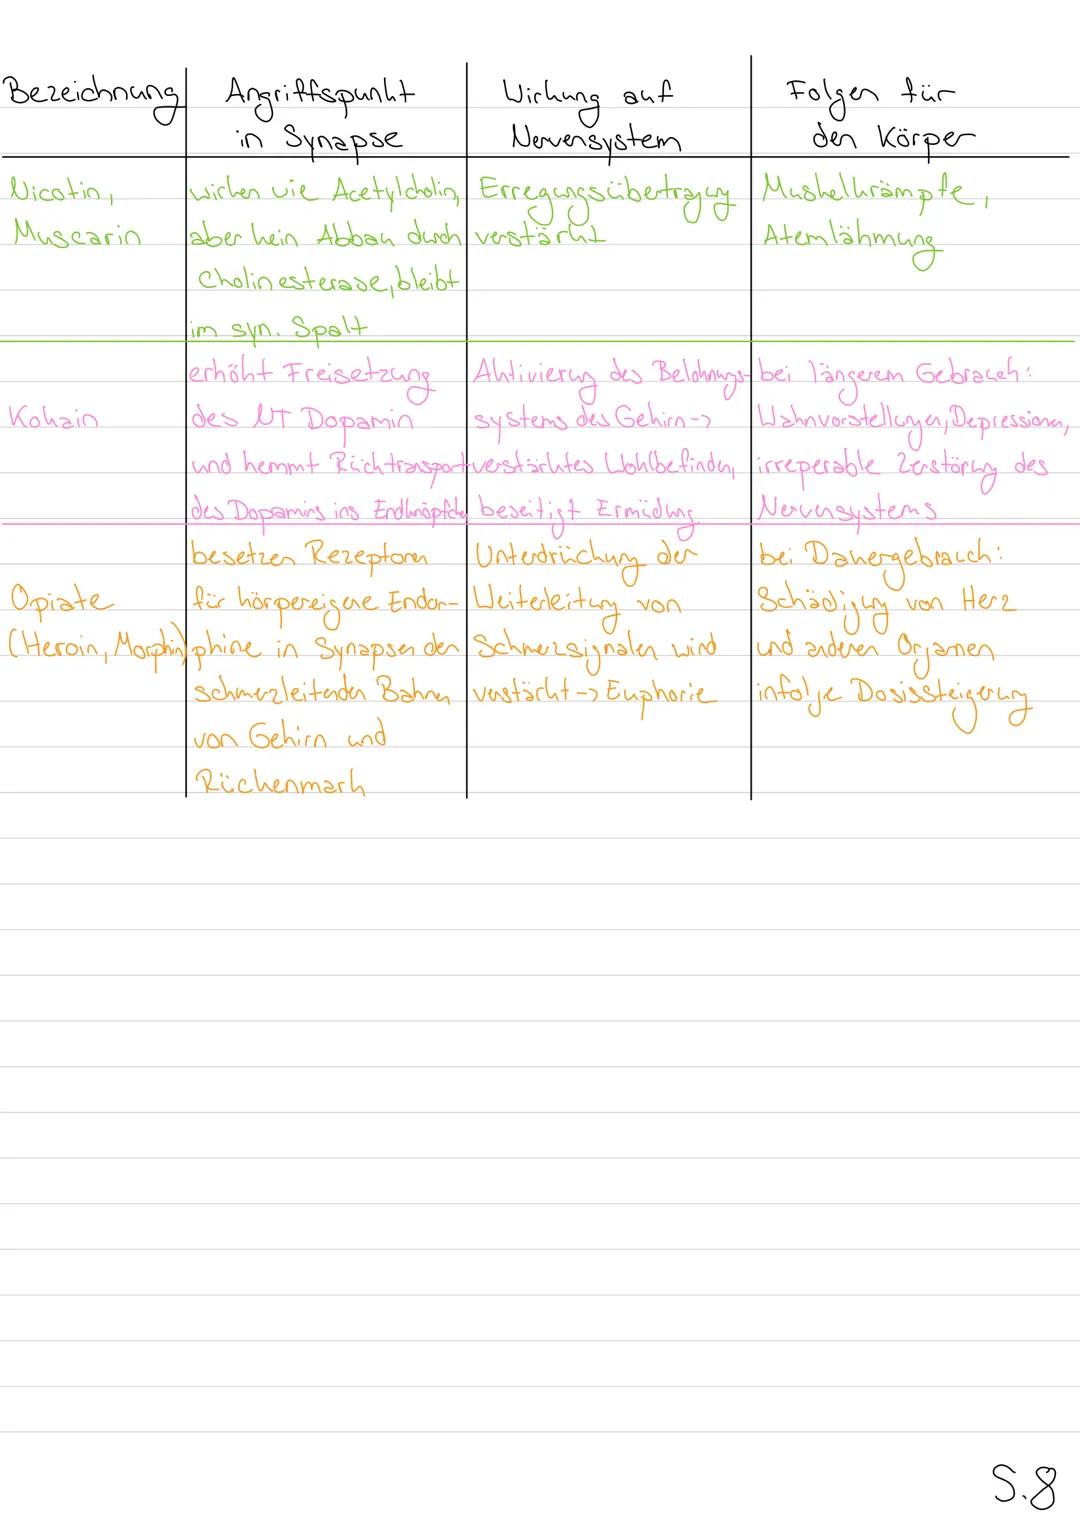 Bezeichnung
Angriffspunkt
in Synapse
Wirkung auf
Nervensystem
Folgen für
den Körper
Nicotin,
Muscarin
wirken wie Acetylcholin,
aber kein Abbau durch
Cholinesterase, bleibt
im syn. Spalt
Erregungsübertragung
verstärkt
Muskelkrämpfe,
Atemlähmung
Kokain
erhöht Freisetzung
des NT Dopamin
und hemmt Rücktransport
des Dopamins ins Endknöpfchen
Aktivierung des Belohnungs-
systems des Gehirn ->
verstärktes Wohlbefinden,
beseitigt Ermüdung
bei längerem Gebrauch:
Wahnvorstellungen, Depressionen,
irreperable Zerstörung des
Nervensystems
Opiate
(Heroin, Morphin)
besetzen Rezeptoren
für körpereigene Endor-
phine in Synapsen der
schmerzleitenden Bahnen
von Gehirn und
Rückenmark
Unterdrückung der
Weiterleitung von
Schmerzsignalen wird
verstärkt -> Euphorie
bei Dauergebrauch:
Schädigung von Herz
und anderen Organen
infolge Dosissteigerung
S.8